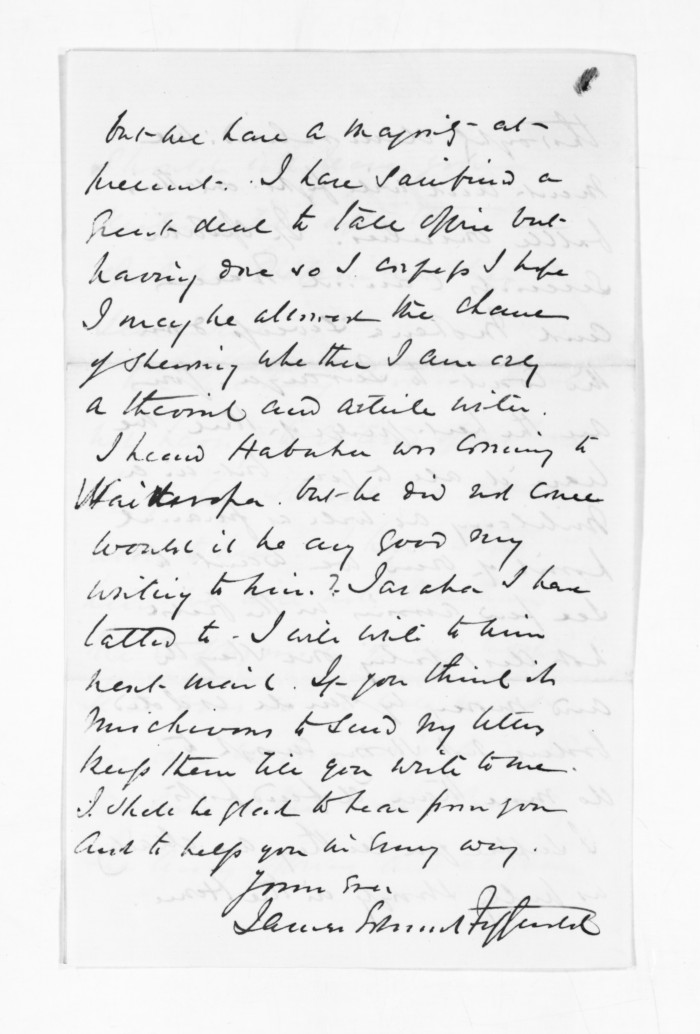 but we have a majority at
present. I have sacrificed a
great deal to take office but
having done so I confess I hope
I may be allowed the chance
of shewing whether I am only
a theorist and article writer.
I heard Habuku was coming to
Wairarapa but he did not come
would it be any good my
writing to him? I have
talked to - I will write to him
next mail. If you think it
mischievous to send my letters
keep them till you write to me.
I shall be glad to hear from you
and to help you in every way.
Yours Ever
James Edward FitzGerald